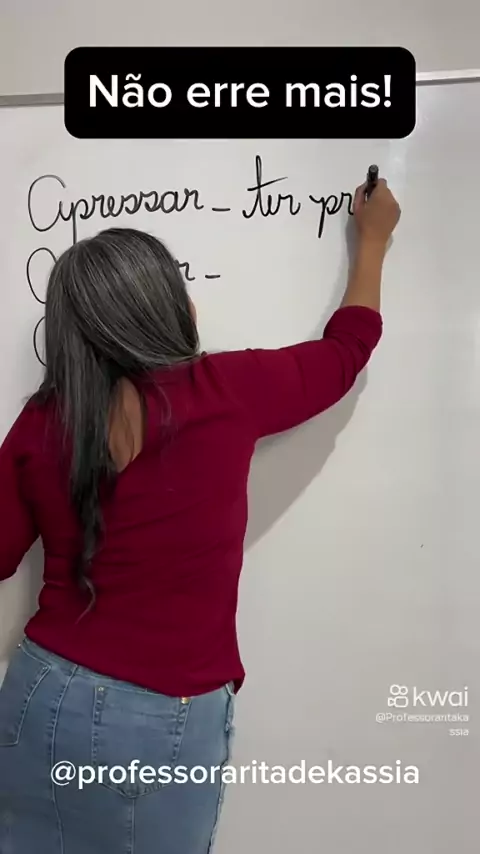 Não erre mais!
Apressar - ter pr
r -
kwai
@Professoraritaka
ssia
@professoraritadekassia